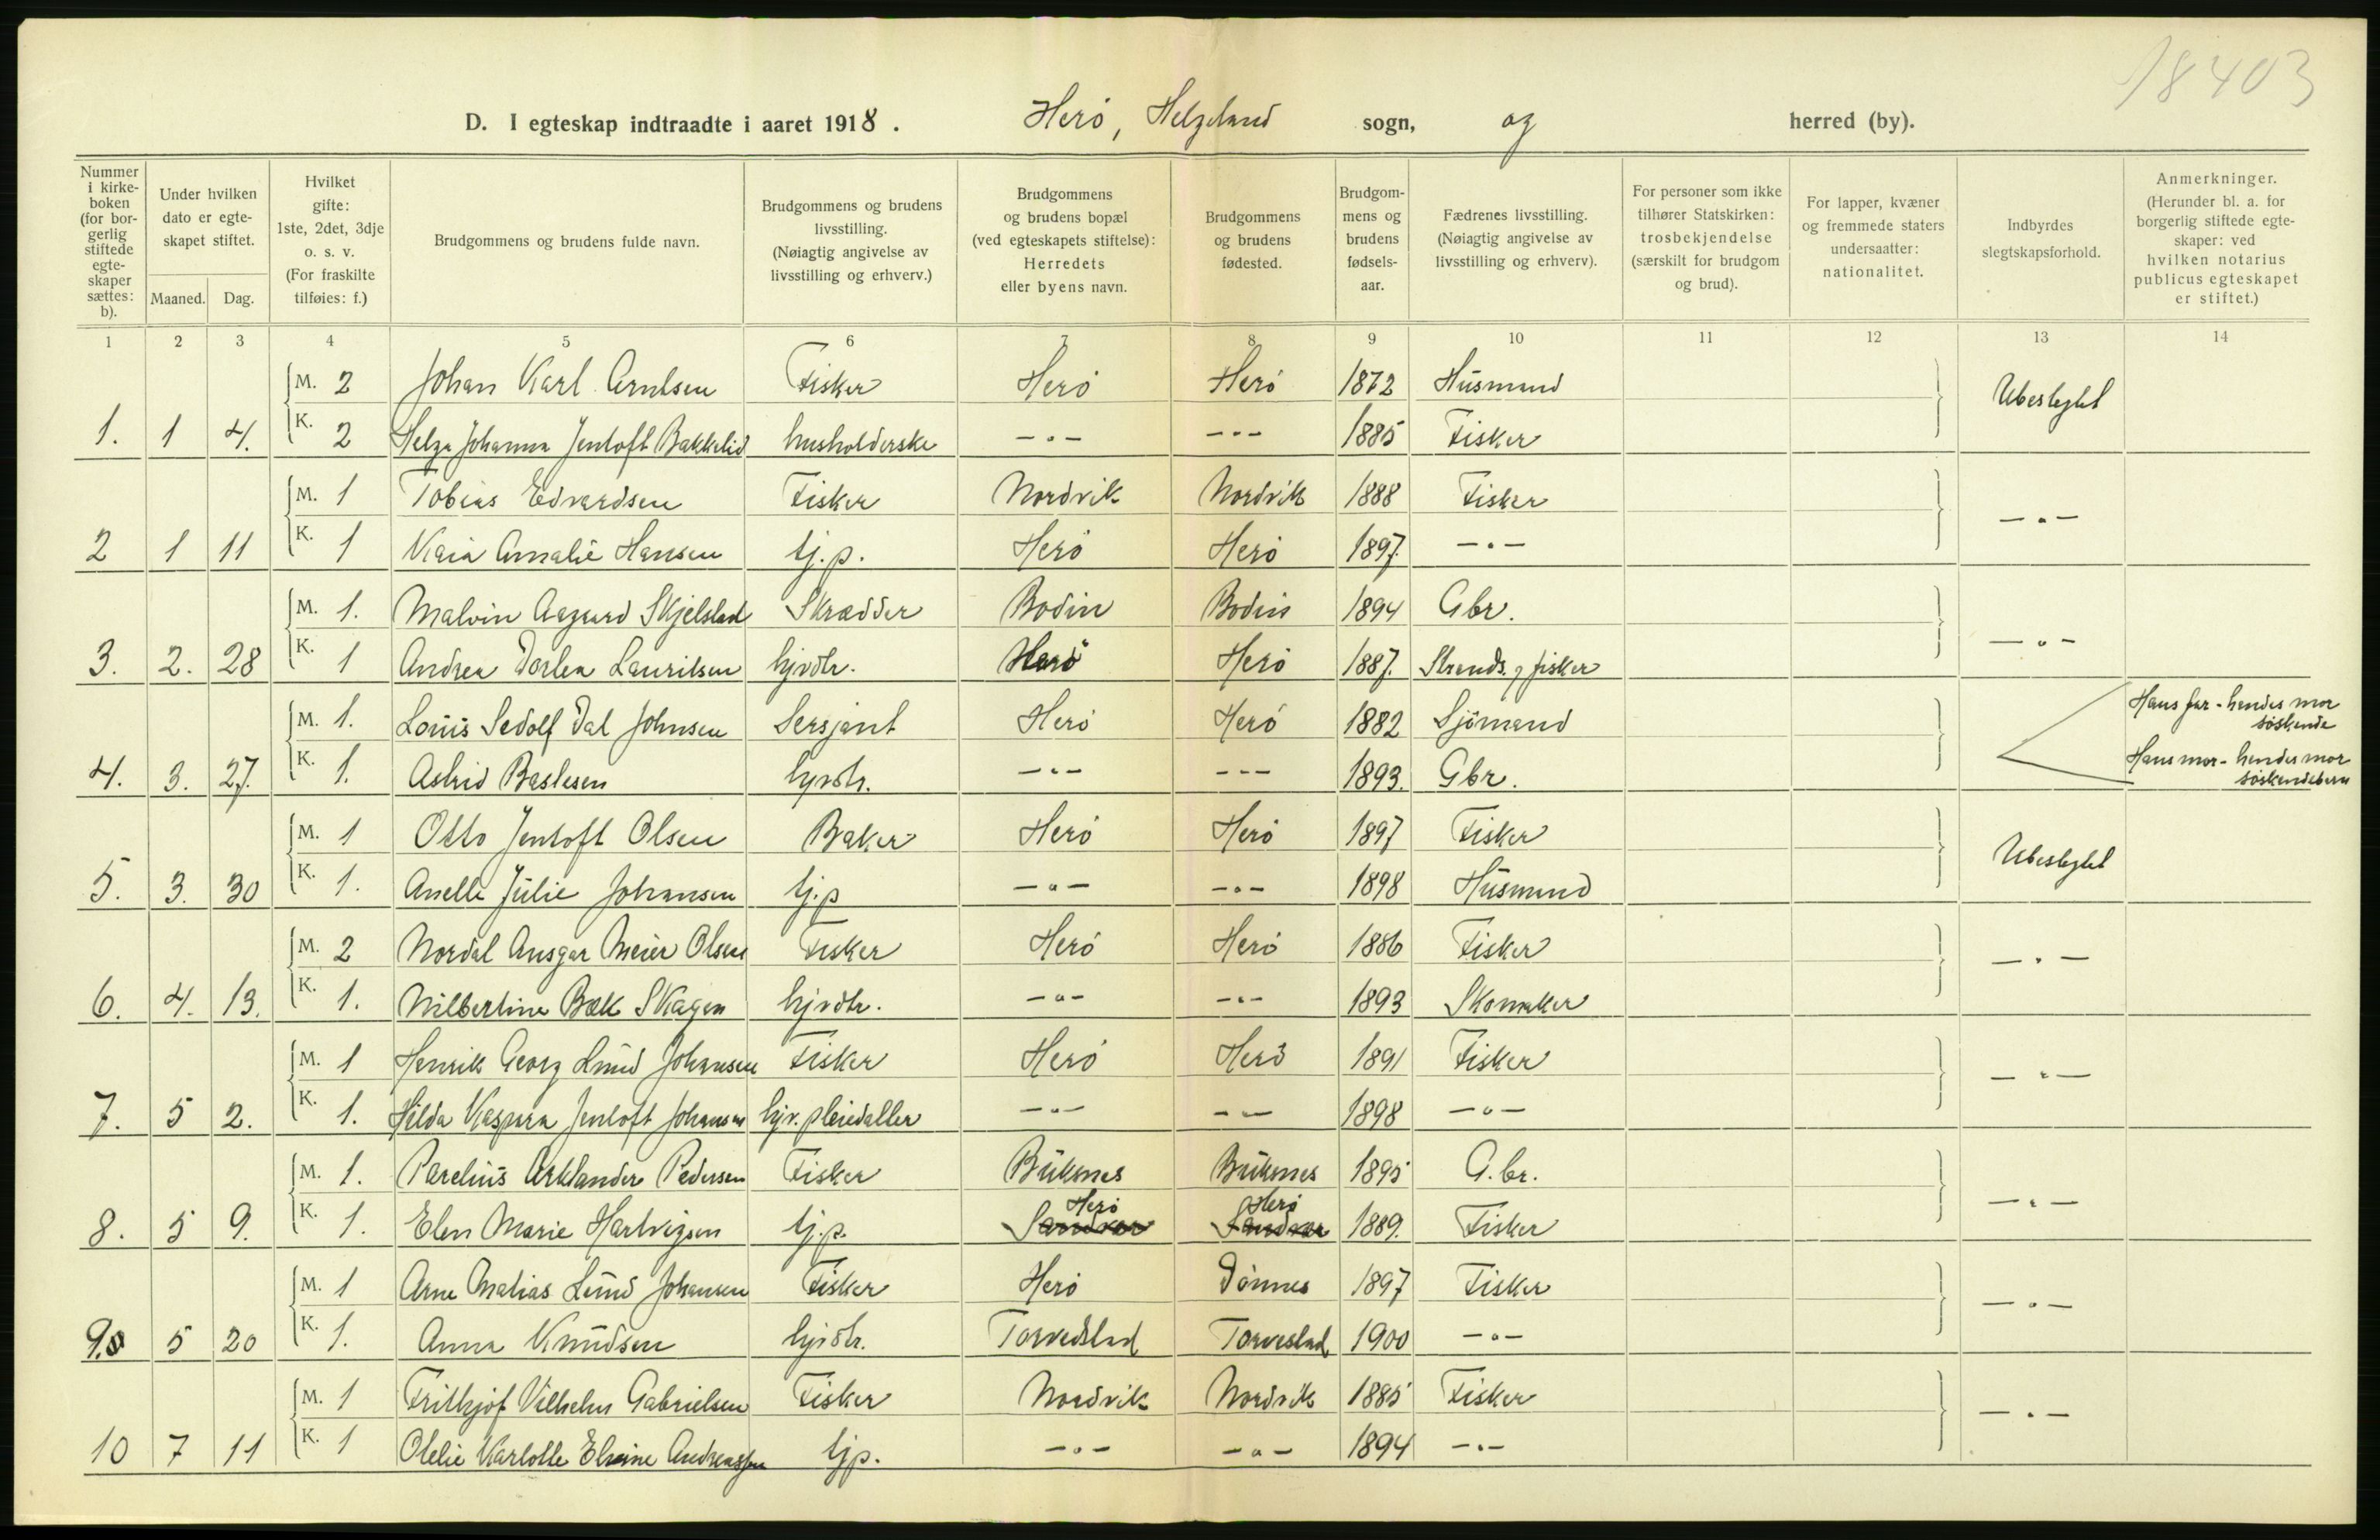 18403
D. I egteskap indtraadte i aaret 1918. Herö, Helgeland sogn, og herred (by).
Nummer i kirke-boken (for bor-gerlig stiftede egte-skaper sættes: b). | Under hvilken dato er egte-skapet stiftet. Maaned. Dag. | Hvilket gifte: 1ste, 2det, 3dje o. s. v. (For fraskilte tilføies: f.) | Brudgommens og brudens fulde navn. | Brudgommens og brudens livsstilling. (Nøiagtig angivelse av livsstilling og erhverv.) | Brudgommens og brudens bopæl (ved egteskapets stiftelse): Herredets eller byens navn. | Brudgommens og brudens fødested. | Brudgom-mens og brudens fødsels-aar. | Fædrenes livsstilling. (Nøiagtig angivelse av livsstilling og erhverv). | For personer som ikke tilhører Statskirken: trosbekjendelse (særskilt for brudgom og brud). | For lapper, kvæner og fremmede staters undersaatter: nationalitet. | Indbyrdes slegtskapsforhold. | Anmerkninger. (Herunder bl. a. for borgerlig stiftede egte-skaper: ved hvilken notarius publicus egteskapet er stiftet.)
1 2 3 4 5 6 7 8 9 10 11 12 13 14
M. 2 Johan Karl Arntsen Fisker Herö Herö 1872 Husmand Ubeslegtet
1. 1 4. K. 2 Helga Johanna Jentoft Bakkelid husholderske -"- -"- 1885 Fisker
M. 1 Tobias Edvardsen Fisker Nordvik Nordvik 1888 Fisker -"-
2 1 11 K. 1 Kaia Amalie Hansen tj.p. Herö Herö 1897. -"-
M. 1. Malvin Aagaard Skjelstad Skrædder Bodin Bodin 1894 Gbr. -"-
3. 2. 28 K. 1 Andrea Dorlea Lauritsen hjvdtr. Herö Herö 1887. Strands. og fisker
M. 1. Louis Sedolf Dal Johnsen Sersjant Herö Herö 1882 Sjömand Hans far - hendes mor söskende
4. 3. 27. K. 1. Astrid Baslesen hjvdtr. -"- -"- 1893. Gbr. Hans mor - hendes mor söskendebarn
M. 1 Otto Jentoft Olsen Baker Herö Herö 1897 Fisker Ubeslegtet
5. 3. 30 K. 1. Anelle Julie Johansen tj.p -"- -"- 1898 Husmand
M. 2 Nordal Ansgar Meier Olsen Fisker Herö Herö 1886 Fisker -"-
6. 4. 13. K. 1. Nilbertine Bæk Skagen hjvdtr. -"- -"- 1893 Skomaker
M. 1 Henrik Georg Lund Johansen Fisker Herö Herö 1891 Fisker -"-
7. 5 2. K. 1. Hilda Kaspara Jentoft Johansen hjv. pleiedatter -"- -"- 1898 -"-
M. 1. Parelius Arklander Pedersen Fisker Buksnes Buksnes 1895 G.br. -"-
8. 5 9. K. 1. Elen Marie Hartvigsen tj.p. Herö Herö 1889. Fisker
M. 1 Arne Matias Lund Johansen Fisker Herö Dönnes 1897 Fisker -"-
9. 5 20 K. 1. Anna Knudsen hjvdtr. Torvedstad Torvestad 1900 -"-
M. 1 Frithjof Vilhelm Gabrielsen Fisker Nordvik Nordvik 1885 Fisker -"-
10 7 11 K. 1 Olelie Karlotte Elvine Andreassen tjp. -"- -"- 1894 -"-